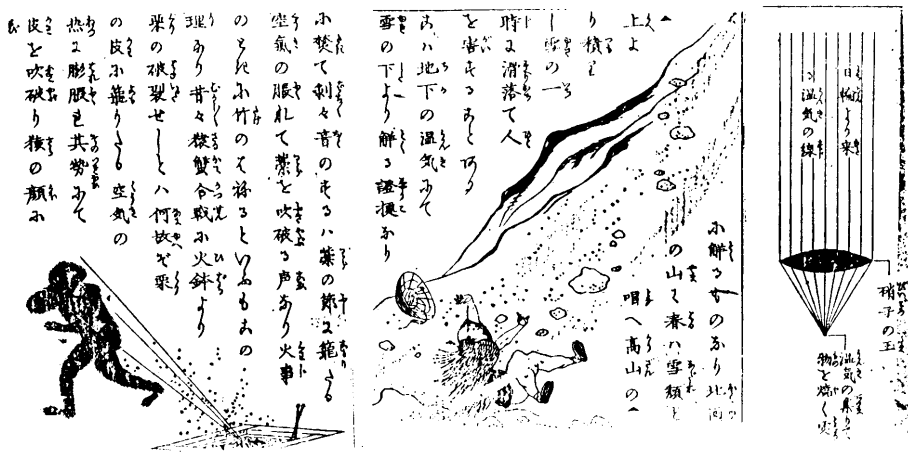 日輪より来
る温気の線
硝子の玉
温気の集りて
物を焼く処
に解るものなり北国
の山にて春ハ雪頽と
唱へ高山の
上より積
り雪の一
時に消落て人
を害することある
もハ地下の温気にて
雪の下より解る證拠なり
に焚て刺々音のするハ藁の節に籠たる
空気の脹れて藁を吹破る声なり火事
のときに竹のはねるといふもこの
理なり昔々猿蟹合戦に火鉢より
栗の破裂せしとハ何故ぞ栗
の皮に籠りたる空気の
熱に膨脹し其勢にて
皮を吹破り猿の顔に